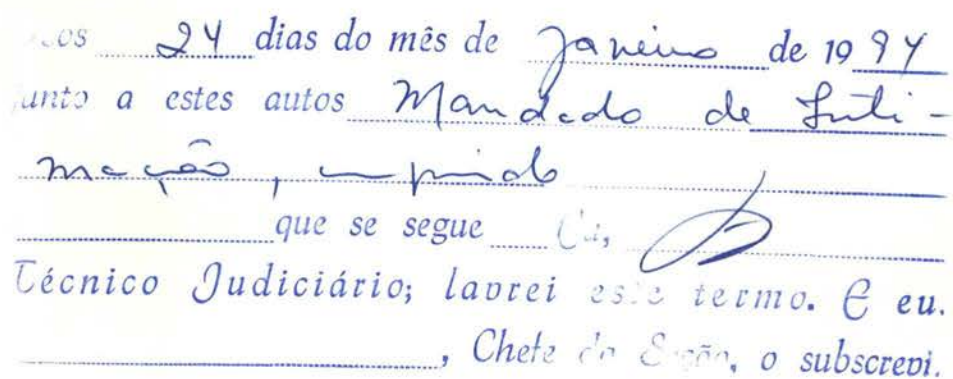 Aos 24 dias do mês de Janeiro de 1994
junto a estes autos Mandado de Inti-
mação, cumprido
que se segue Eu,
Técnico Judiciário; lavrei este termo. E eu.
, Chefe da Seção, o subscrevi.